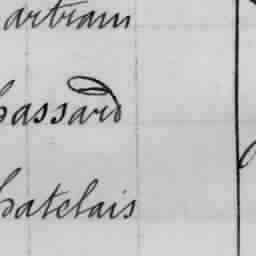 artram
hassard
hatelais